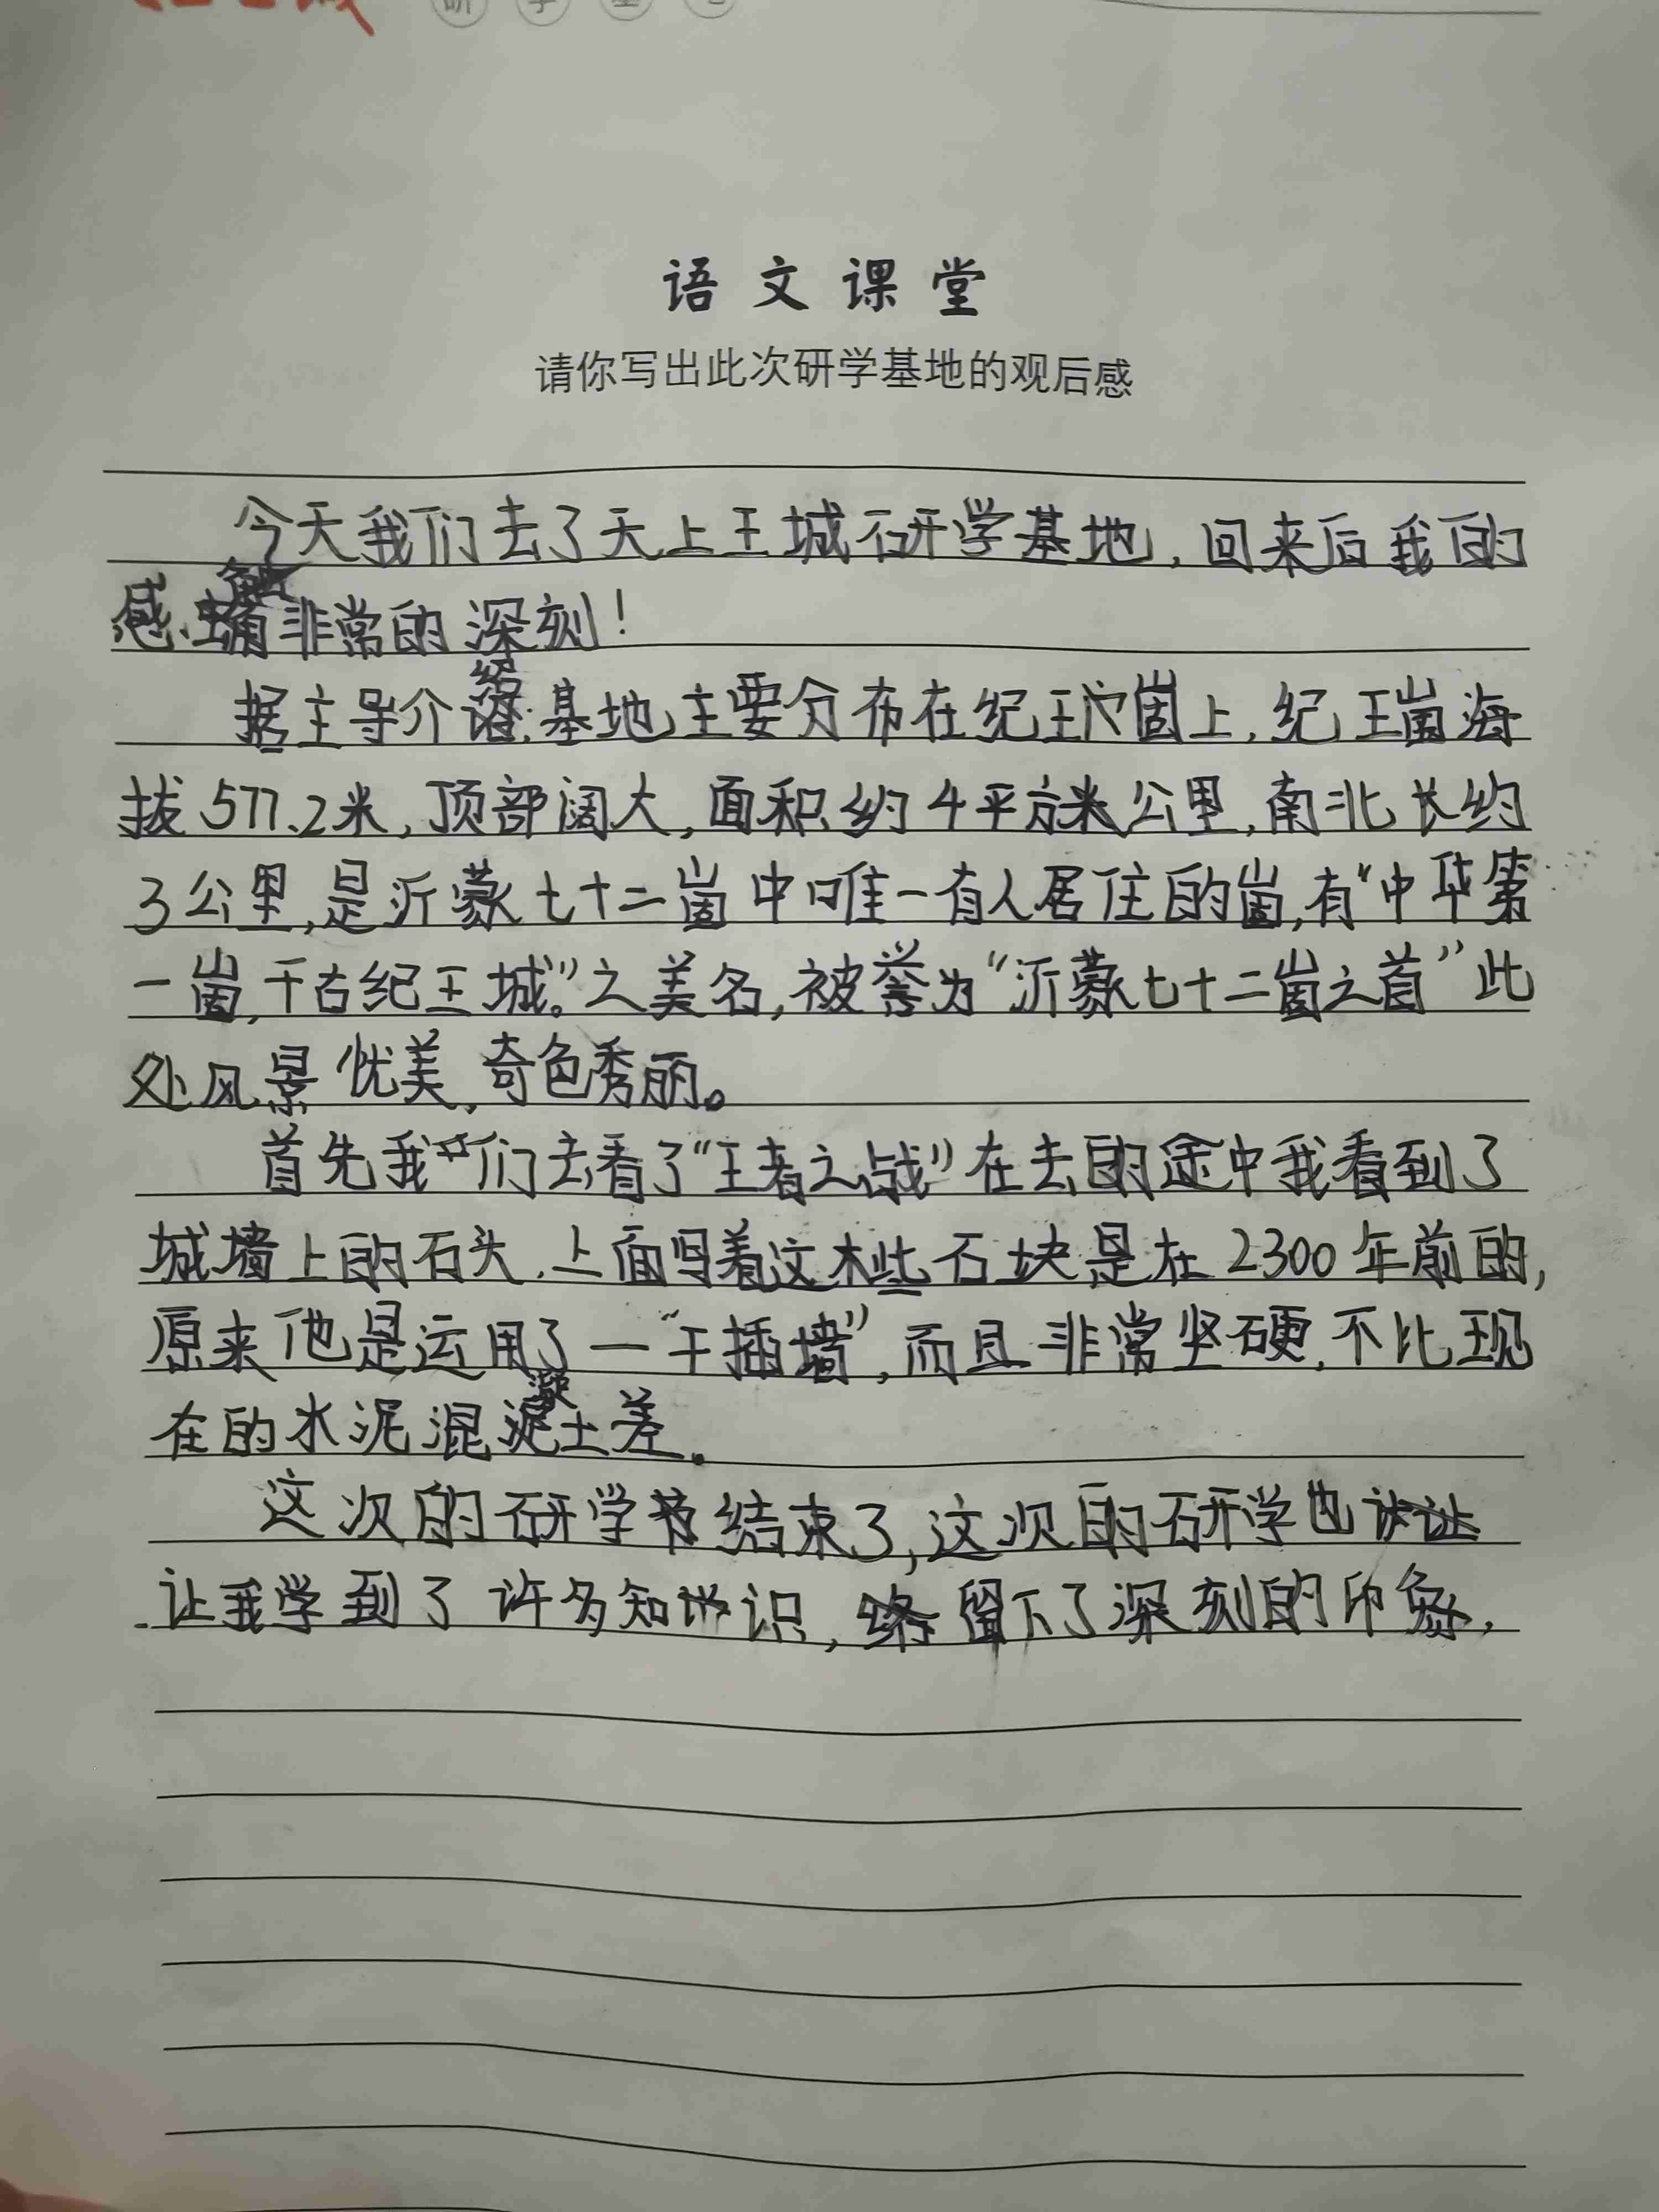 研学基地
语文课堂
请你写出此次研学基地的观后感
今天我们去了天上王城研学基地，回来后我的
感触非常的深刻！
据主导介绍，基地主要分布在纪王崮上，纪王崮海
拔577.2米，顶部阔大，面积约4平方公里，南北长约
3公里，是沂蒙七十二崮中唯一有人居住的崮，有“中华第
一崮，千古纪王城。”之美名，被誉为“沂蒙七十二崮之首”此
处风景忧美，奇色秀丽。
首先我们去看了“王者之战”在去的途中我看到了
城墙上的石头，上面写着这些石块是在2300年前的，
原来他是运用了一“干插墙”，而且非常坚硬，不比现
在的水泥混凝土差。
这次的研学结束了，这次的研学也
让我学到了许多知识，留下了深刻的印象，